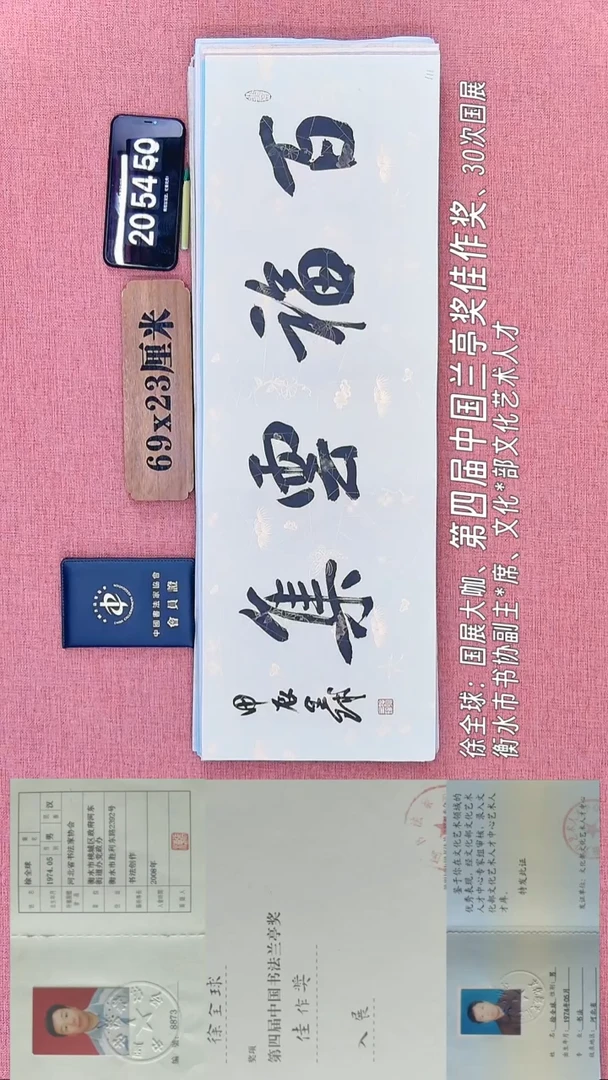 20 54 50
69x23厘米
中國書法家協會
會員證
百福雲集
甲辰
全球
徐全球：国展大咖、第四届中国兰亭奖佳作奖、30次国展
衡水市书协副主*席、文化*部文化艺术人才
徐全球
1974.05 男 汉
河北省书法家协会
衡水市桃城区政府河东
街道办党政办
衡水市胜利东路2202号
书法创作
2008年
8873
徐全球
奖项
第四届中国书法兰亭奖
佳作奖
入展
鉴于你在文化艺术领域的
优秀表现，经文化部文化艺术
人才中心专家组审核，录入文
化部文化艺术人才中心艺术人
才库。
特发此证